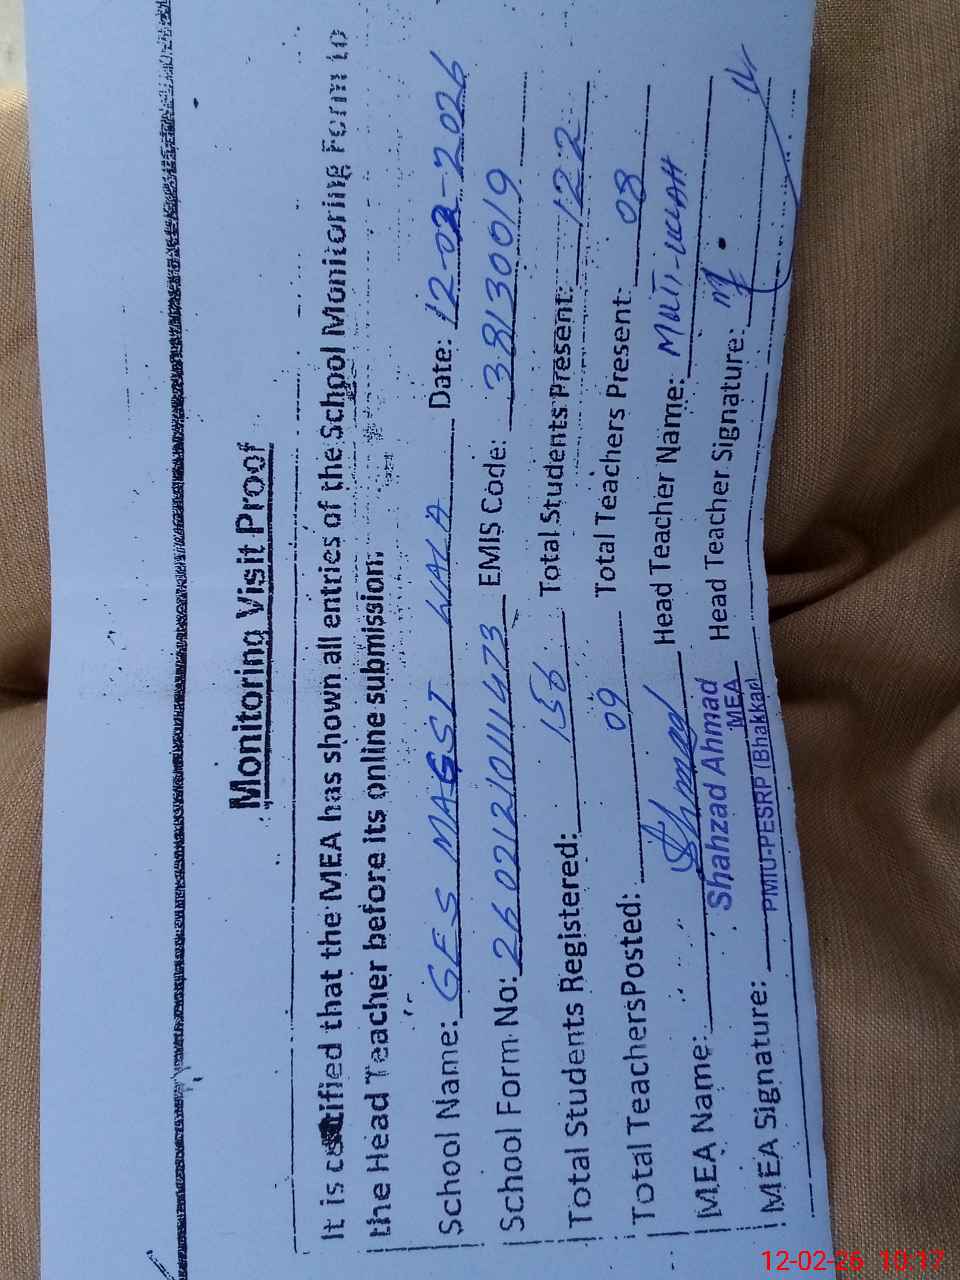 Monitoring Visit Proof
It is certified that the MEA has shown all entries of the School Monitoring Form to
the Head Teacher before its online submission.
School Name: GES MAGSI WALA Date: 12-02-2026
School Form No: 2602121011473 EMIS Code: 38130019
Total Students Registered: 156 Total Students Present: 122
Total Teachers Posted: 09 Total Teachers Present: 08
MEA Name: Head Teacher Name: MUTI-ULLAH
Shahzad Ahmad
MEA
PMIU-PESRP (Bhakkar)
MEA Signature: Head Teacher Signature:
12-02-26 10:17